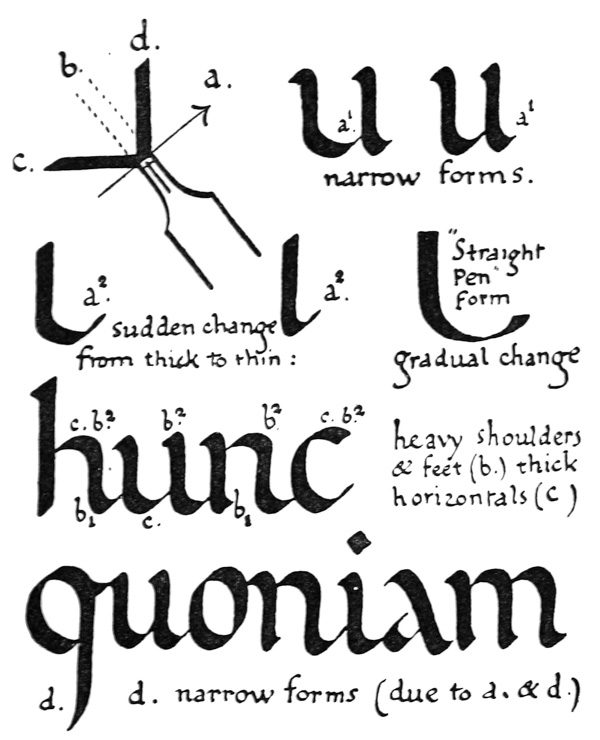 d.
b.
a.
c.
u u
a¹ a¹
narrow forms.
l l
a². a².
"Straight
Pen"
form
sudden change
from thick to thin :
gradual change
c. b.² b.² b.² c. b.²
hunc
b₁ c. b₁
heavy shoulders
& feet (b.) thick
horizontals (c)
quoniam
d. d. narrow forms (due to a. & d.)